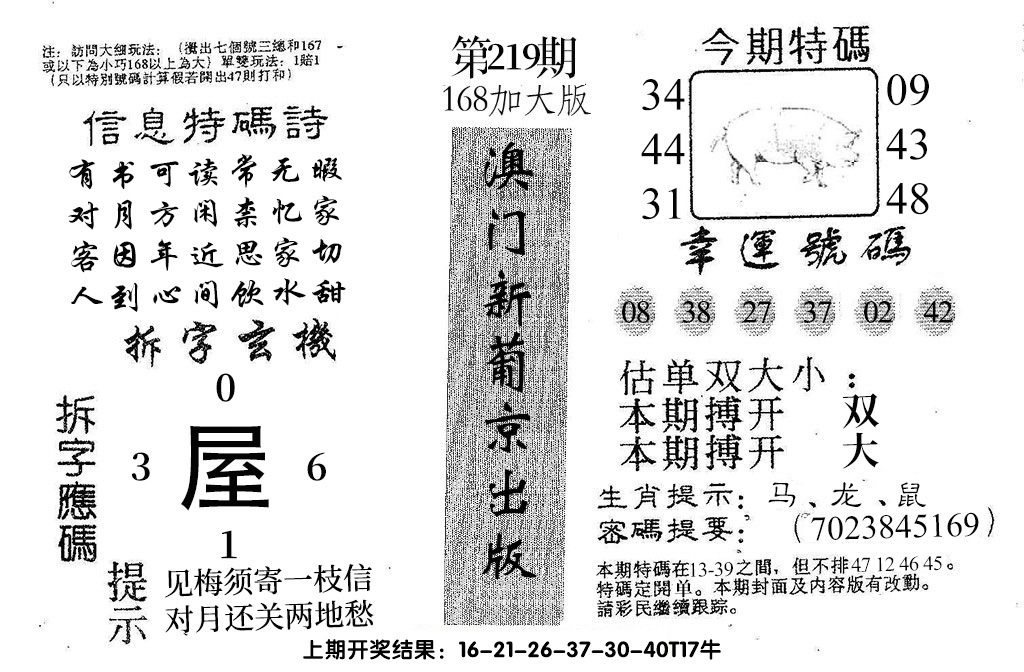 注：訪問大细玩法：（攪出七個號三總和167
或以下為小巧168以上為大）單雙玩法：1賠1
（只以特別號碼計算假若開出47則打和）
信息特碼詩
有书可读常无暇
对月方闲柰忆家
客因年近思家切
人到心间飲水甜
拆字玄機
0
3 屋 6
1
拆字應碼
提示
见梅须寄一枝信
对月还关两地愁
第219期
168加大版
澳门新葡京出版
今期特碼
34 09
44 43
31 48
幸運號碼
08 38 27 37 02 42
估单双大小：
本期搏开 双
本期搏开 大
生肖提示：马、龙、鼠
密碼提要：（7023845169）
本期特碼在13-39之間，但不排47 12 46 45。
特碼定開单。本期封面及内容版有改動。
請彩民繼續跟踪。
上期开奖结果：16-21-26-37-30-40T17牛